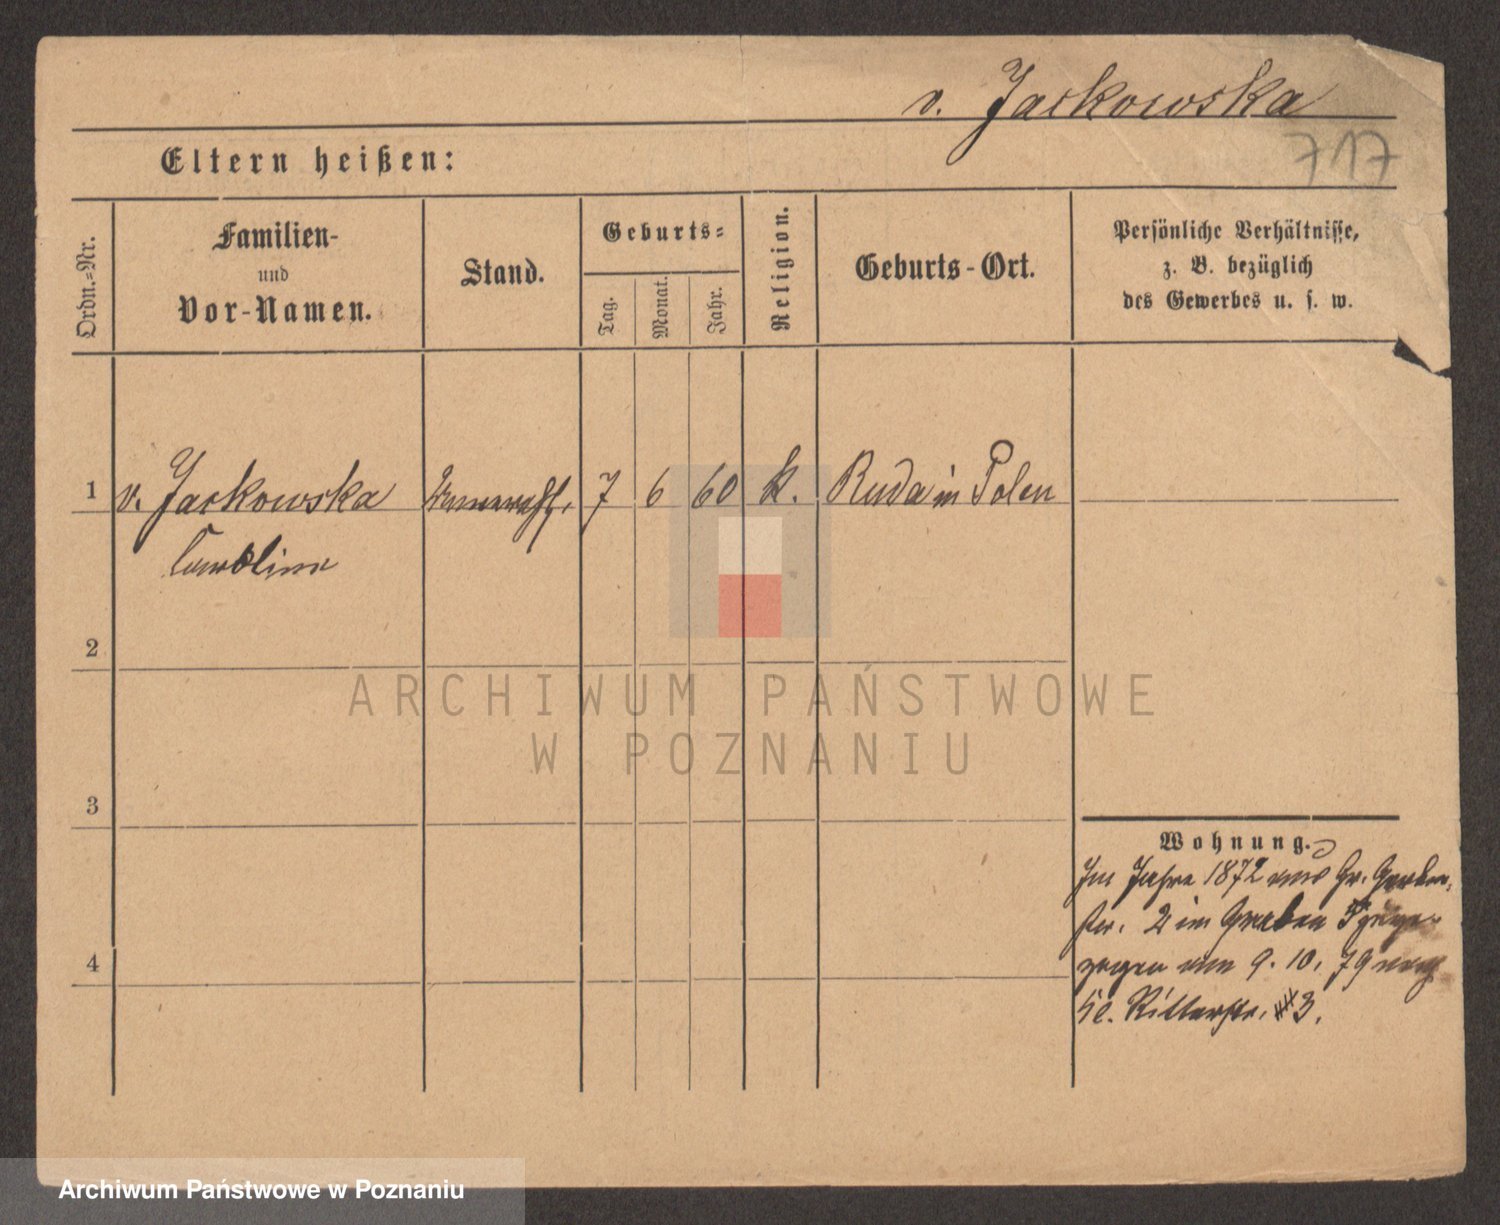 v. Jackowska
717
Eltern heißen:
Ordn.-Nr.
Familien-
und
Vor-Namen.
Stand.
Geburts-
Tag.
Monat.
Jahr.
Religion.
Geburts-Ort.
Persönliche Verhältnisse,
z. B. bezüglich
des Gewerbes u. s. w.
1 v. Jackowska 7 6 60 k. Ruda in Polen
Caroline
2
3
4
Wohnung.
Im Jahre 1872 aus Gr. Gerber-
str. 2 im Graben
zogen am 9. 10. 79 nach
kl. Ritterstr. 3.
ARCHIWUM PAŃSTWOWE
W POZNANIU
Archiwum Państwowe w Poznaniu